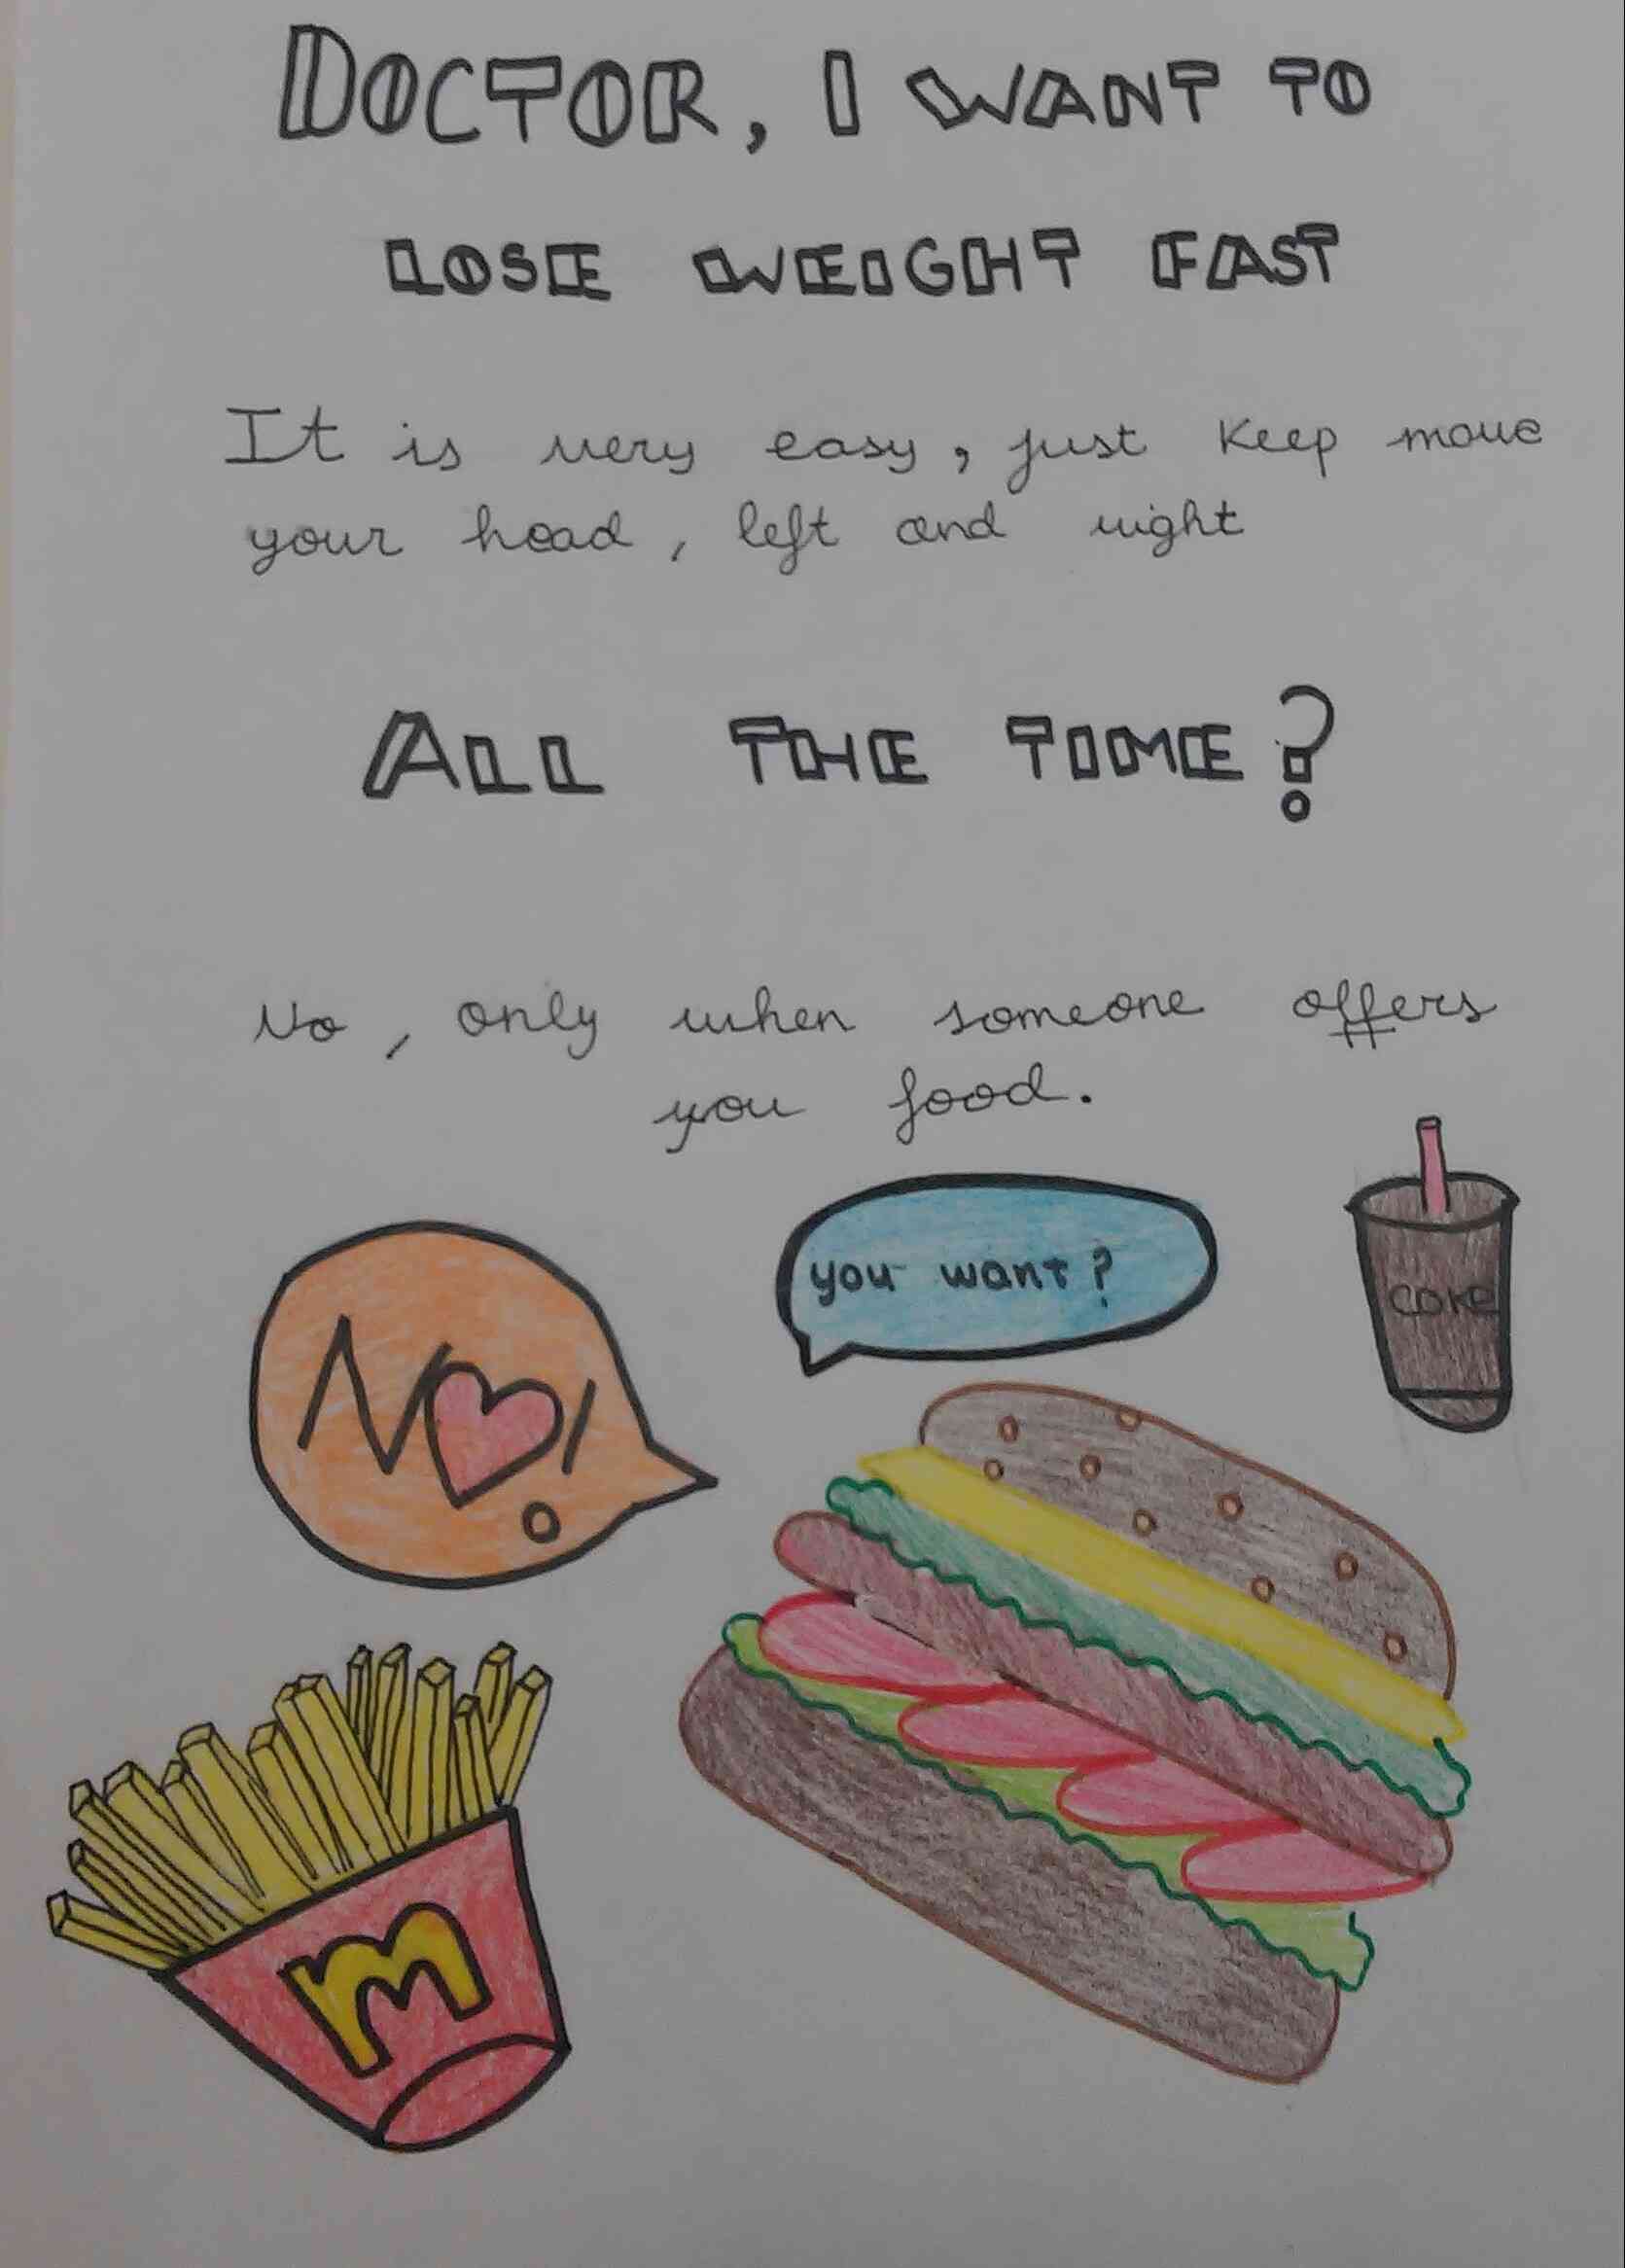 DOCTOR, I WANT TO
LOSE WEIGHT FAST
It is very easy, just keep move
your head, left and right
ALL THE TIME?
No, only when someone offers
you food.
you want?
COKE
NO!
m